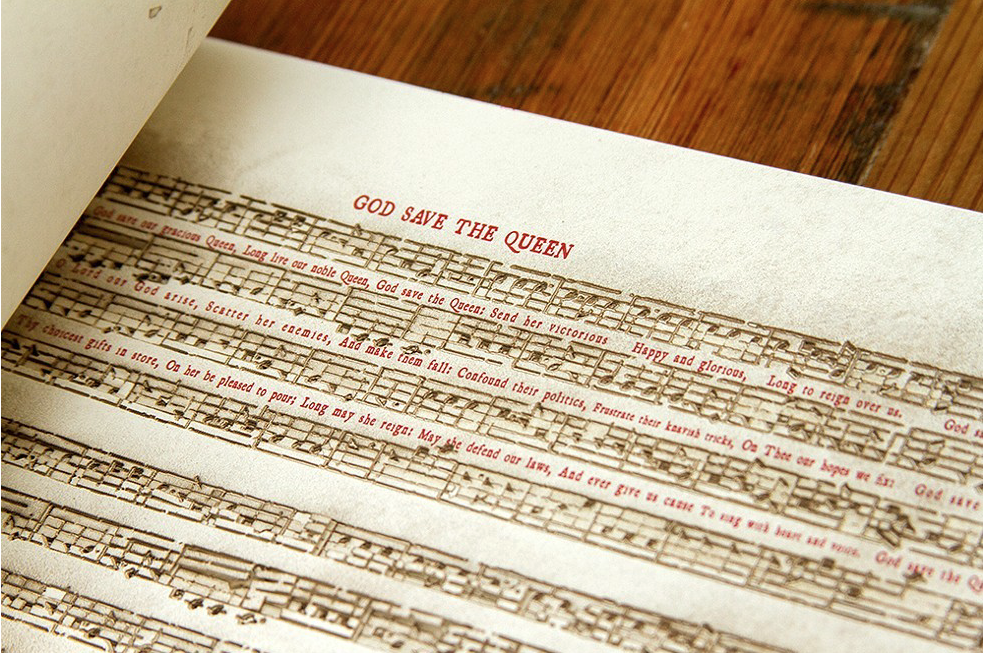 GOD SAVE THE QUEEN
God save our gracious Queen, Long live our noble Queen, God save the Queen: Send her victorious Happy and glorious, Long to reign over us. God
O Lord our God arise, Scatter her enemies, And make them fall: Confound their politics, Frustrate their knavish tricks, On Thee our hopes we fix: God save
Thy choicest gifts in store, On her be pleased to pour; Long may she reign: May she defend our laws, And ever give us cause To sing with heart and voice. God save the